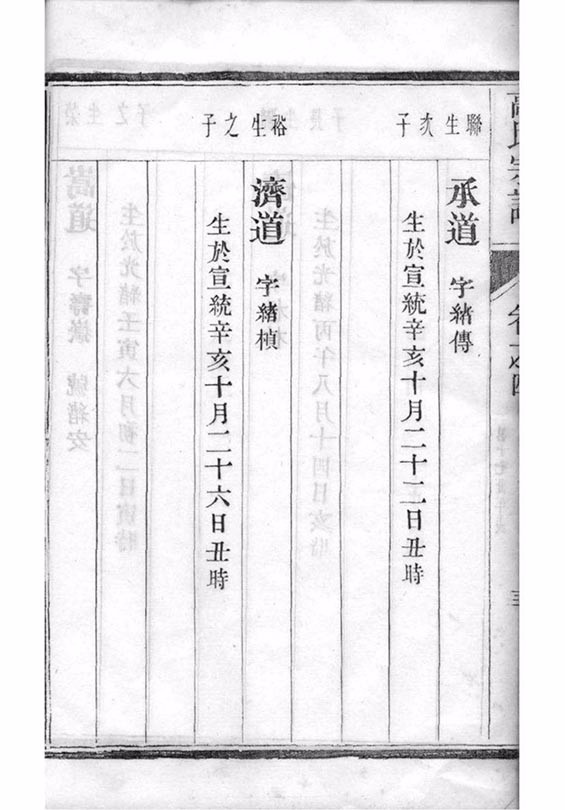 高氏宗譜
卷之四
聯生次子
承道 字緒傳
生於宣統辛亥十月二十二日丑時
裕生之子
濟道 字緒楨
生於宣統辛亥十月二十六日丑時